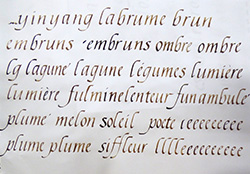 yinyang labrume brun
embruns embruns ombre ombre
lg lagune lagune légumes lumière
lumière fulminelenteur funambule
plume melon soleil poete veeeeeeee
plume plume siffleur lllleeeeeeeeee